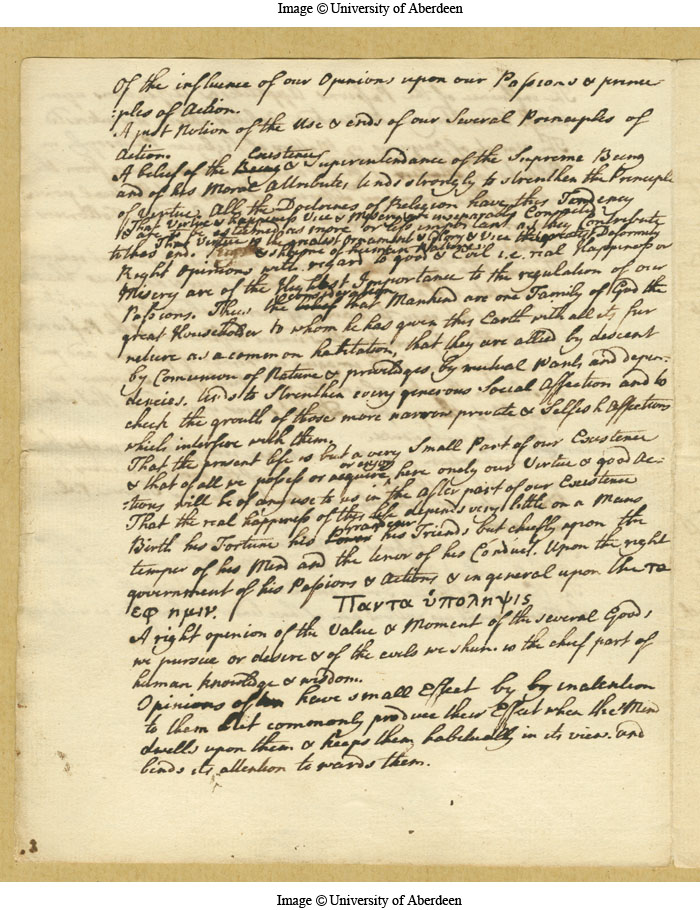 Image © University of Aberdeen
Of the influence of our Opinions upon our Passions & princi
:ples of Action.
A just Notion of the Use & ends of our Several Principles of
Action.
Existence
A belief of the Being & Superintendance of the Supreme Being
and of his Moral Attributes, tends strongly to strenthen the Principle
of Virtue. All the Doctrines of Religion have this Tendency
That Virtue & Happiness Vice & Misery are inseparably Connected
& are esteemed as more or less important as they Contribute
to this end. That Virtue is the greatest Ornament & Glory & Vice the greatest Deformity
& shame of human Nature
Right Opinions with regard to good & Evil i.e. real Happiness or
Misery are of the Highest Importance to the regulation of our
consideration
Passions. Thus the that Mankind are one Family of God the
great Housholder to whom he has given this Earth with all its fur
neture as a common habitation, that they are allied by descent
by Comunion of Nature & priviledges by mutual Wants and depen-
dencies. tends to Strenthen every generous Social Affection and to
check the grouth of those more narrow private & Selfish Affections
which interfere with them.
That the present life is but a very Small Part of our Existence
or enjoy
& that of all we possess or acquire here onely our Virtue & good Ac-
:tions will be of any use to us in the After part of our Existence
That the real happiness of this life depends very little on a Mans
Grandeur
Birth his Fortune his Power his Friends but chiefly upon the
temper of his Mind and the tenor of his Conduct. Upon the right
government of his Passions & Actions & in general upon the τα
εφ ημιν. Παντα ὑποληψις
A right opinion of the Value & Moment of the several Goods
we pursue or desire & of the evils we shun. is the chief part of
human knowledge & wisdom.
Opinions often have small Effect by by inattention
to them but commonly produce their Effect when the Mind
dwells upon them & keeps them habitually in its view. and
bends its attention towards them.
Image © University of Aberdeen